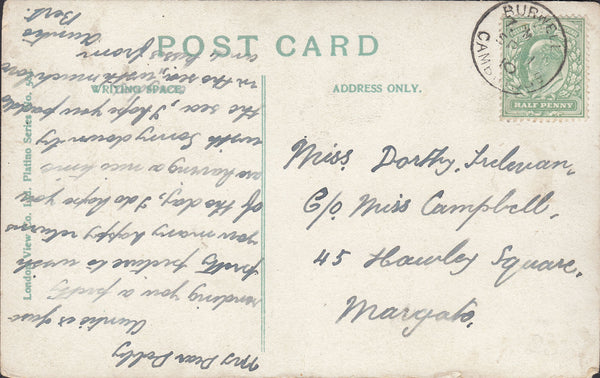 POST CARD
WRITING SPACE.
ADDRESS ONLY.
HALF PENNY
BURWELL
CAMB
London View Co. Ltd. Platino. Series No.
Miss Dorthy. Trelevan.
C/o Miss Campbell,
45 Hawley Square.
Margate.
My Dear Dolly
Auntie is just
sending you a pretty
pretty picture to wish
you many happy returns
of the day, I do hope you
are having a nice time
with Sonny down by
the sea, I hope you paddle
in the sea, with much love
and kisses from
Auntie
Bert.